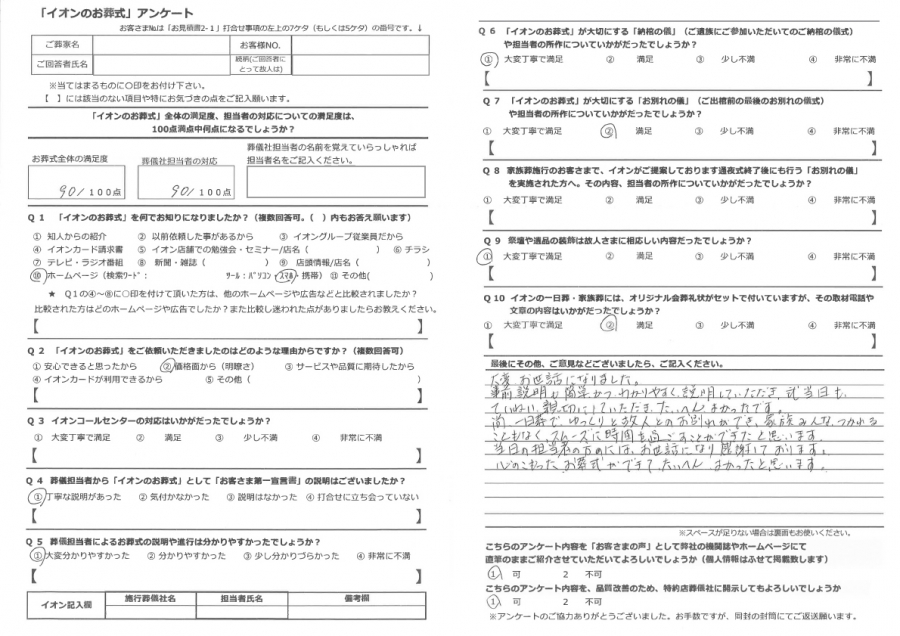 「イオンのお葬式」アンケート
お客さま№は「お見積書2-1」打合せ事項の左上の7ケタ(もしくは5ケタ)の番号です。↓
ご葬家名
お客様NO.
ご回答者氏名
続柄(ご回答者にとって故人は)
※当てはまるものに○印をお付け下さい。
【 】には該当のない項目や特にお気づきの点をご記入願います。
「イオンのお葬式」全体の満足度、担当者の対応についての満足度は、
100点満点中何点になるでしょうか?
お葬式全体の満足度
90/100点
葬儀社担当者の対応
90/100点
葬儀社担当者の名前を覚えていらっしゃれば
担当者名をご記入ください。
Q1 「イオンのお葬式」を何でお知りになりましたか?(複数回答可。( )内もお答え願います)
① 知人からの紹介 ② 以前依頼した事があるから ③ イオングループ従業員だから
④ イオンカード請求書 ⑤ イオン店舗での勉強会・セミナー/店名( ) ⑥ チラシ
⑦ テレビ・ラジオ番組 ⑧ 新聞・雑誌( ) ⑨ 店頭情報/店名( )
⑩ ホームページ(検索ワード: ツール:パソコン・スマホ・携帯) ⑪ その他( )
★ Q1の④~⑧に○印を付けて頂いた方は、他のホームページや広告などと比較されましたか?
比較された方はどのホームページや広告でしたか?また比較し迷われた点がありましたらお教えください。
【 】
Q2 「イオンのお葬式」をご依頼いただきましたのはどのような理由からですか?(複数回答可)
① 安心できると思ったから ② 価格面から(明瞭さ) ③ サービスや品質に期待したから
④ イオンカードが利用できるから ⑤ その他( )
【 】
Q3 イオンコールセンターの対応はいかがだったでしょうか?
① 大変丁寧で満足 ② 満足 ③ 少し不満 ④ 非常に不満
【 】
Q4 葬儀担当者から「イオンのお葬式」として「お客さま第一宣言書」の説明はございましたか?
① 丁寧な説明があった ② 気付かなかった ③ 説明はなかった ④ 打合せに立ち会っていない
【 】
Q5 葬儀担当者によるお葬式の説明や進行は分かりやすかったでしょうか?
① 大変分かりやすかった ② 分かりやすかった ③ 少し分かりづらかった ④ 非常に不満
【 】
イオン記入欄
施行葬儀社名
担当者氏名
備考欄
Q6 「イオンのお葬式」が大切にする「納棺の儀」(ご遺族にご参加いただいてのご納棺の儀式)
や担当者の所作についていかがだったでしょうか?
① 大変丁寧で満足 ② 満足 ③ 少し不満 ④ 非常に不満
【 】
Q7 「イオンのお葬式」が大切にする「お別れの儀」(ご出棺前の最後のお別れの儀式)
や担当者の所作についていかがだったでしょうか?
① 大変丁寧で満足 ② 満足 ③ 少し不満 ④ 非常に不満
【 】
Q8 家族葬施行のお客さまで、イオンがご提案しております通夜式終了後にも行う「お別れの儀」
を実施された方へ。その内容、担当者の所作についていかがだったでしょうか?
① 大変丁寧で満足 ② 満足 ③ 少し不満 ④ 非常に不満
【 】
Q9 祭壇や遺品の装飾は故人さまに相応しい内容だったでしょうか?
① 大変丁寧で満足 ② 満足 ③ 少し不満 ④ 非常に不満
【 】
Q10 イオンの一日葬・家族葬には、オリジナル会葬礼状がセットで付いていますが、その取材電話や
文章の内容はいかがだったでしょうか?
① 大変丁寧で満足 ② 満足 ③ 少し不満 ④ 非常に不満
【 】
最後にその他、ご意見などございましたら、ご記入ください。
大変お世話になりました。
事前説明も簡単かつわかりやすく説明していただき、式当日も
ていねい、親切にしていただき、たいへんよかったです。
尚、一日葬で、ゆっくりと故人とのお別れができ、家族みんな、つかれる
こともなく、スムーズに時間を過ごすことができたと思います。
当日の担当者の方のには、お世話になり感謝しております。
心のこもったお葬式ができて、たいへんよかったと思います。
※スペースが足りない場合は裏面もお使いください。
こちらのアンケート内容を「お客さまの声」として弊社の機関誌やホームページにて
直筆のままご紹介させていただいてよろしいでしょうか(個人情報はふせて掲載致します)
1 可 2 不可
こちらのアンケート内容を、品質改善のため、特約店葬儀社に開示してもよろしいでしょうか
1 可 2 不可
※アンケートのご協力ありがとうございました。お手数ですが、同封の封筒にてご返送願います。